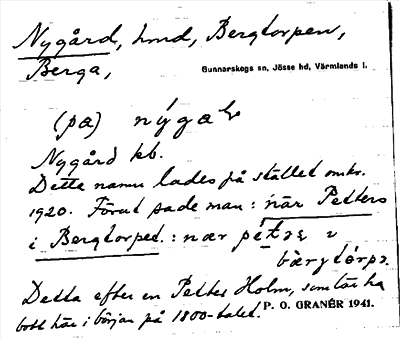 Nygård, hmd, Bergtorpen,
Berga,
Gunnarskogs sn, Jösse hd, Värmlands l.
(på) nýga
Nygård kb.
Detta namn lades på stället omkr.
1920. Förut sade man: när Petters
i Bergtorpet. : nær
Detta efter en Petter Holm, som lär ha
bott här i början på 1800-talet.
P. O. GRANÉR 1941.